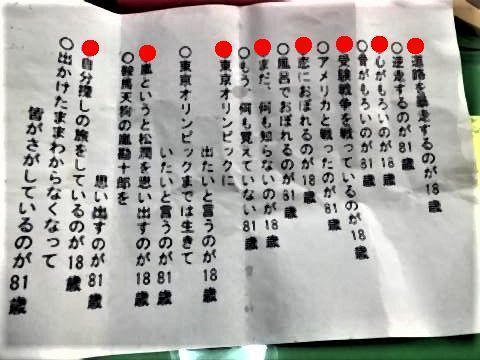 ●道路を暴走するのが18歳
○逆走するのが81歳
●心がもろいのが18歳
○骨がもろいのが81歳
●受験戦争を戦っているのが18歳
○アメリカと戦ったのが81歳
●恋におぼれるのが18歳
○風呂でおぼれるのが81歳
●まだ、何も知らないのが18歳
○もう、何も覚えていない81歳
●東京オリンピックに
出たいと言うのが18歳
○東京オリンピックまでは生きて
いたいと言うのが81歳
●嵐というと松潤を思い出すのが18歳
○鞍馬天狗の嵐勘十郎を
思い出すのが81歳
●自分探しの旅をしているのが18歳
○出かけたままわからなくなって
皆がさがしているのが81歳